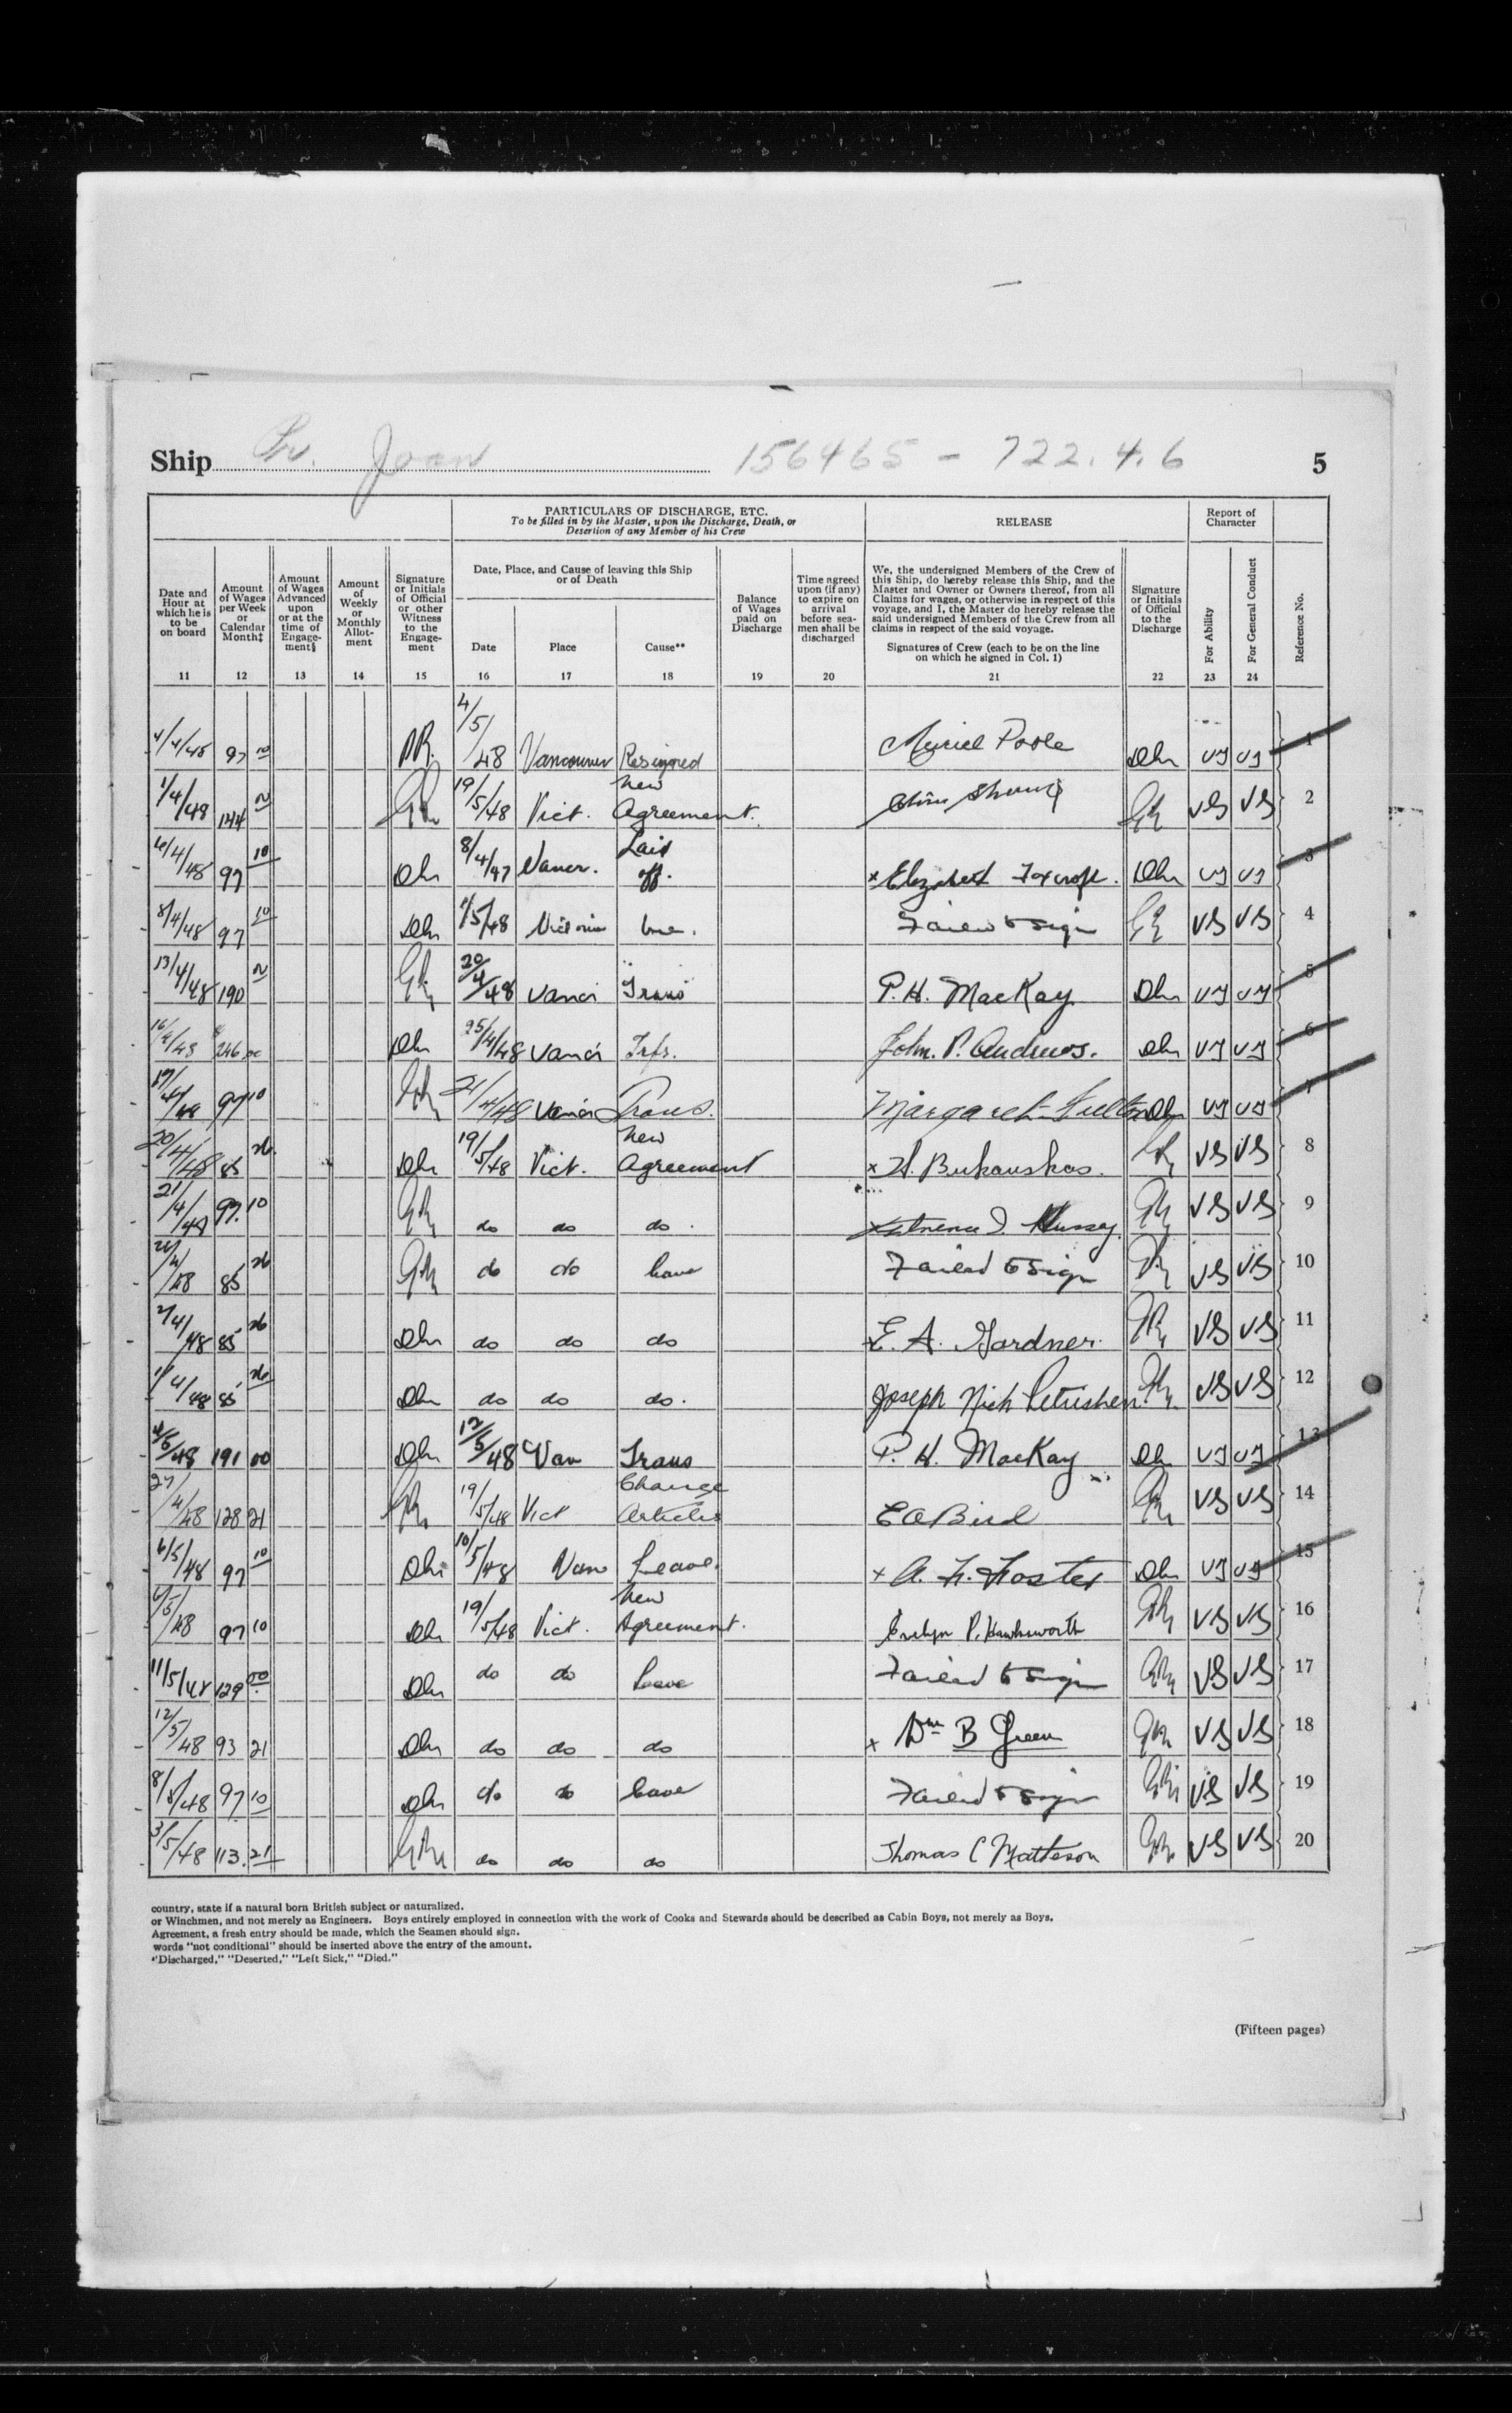 Ship Pr. Joan 156465 - 722.4.6 5
PARTICULARS OF DISCHARGE, ETC.
To be filled in by the Master, upon the Discharge, Death, or
Desertion of any Member of his Crew
RELEASE
Report of
Character
Date and
Hour at
which he is
to be
on board
Amount
of Wages
per Week
or
Calendar
Month‡
Amount
of Wages
Advanced
upon
or at the
time of
Engage-
ment§
Amount
of
Weekly
or
Monthly
Allot-
ment
Signature
or Initials
of Official
or other
Witness
to the
Engage-
ment
Date, Place, and Cause of leaving this Ship
or of Death
Date
Place
Cause**
Balance
of Wages
paid on
Discharge
Time agreed
upon (if any)
to expire on
arrival
before sea-
men shall be
discharged
We, the undersigned Members of the Crew of
this Ship, do hereby release this Ship, and the
Master and Owner or Owners thereof, from all
Claims for wages, or otherwise in respect of this
voyage, and I, the Master do hereby release the
said undersigned Members of the Crew from all
claims in respect of the said voyage.
Signatures of Crew (each to be on the line
on which he signed in Col. 1)
Signature
or Initials
of Official
to the
Discharge
For Ability
For General Conduct
Reference No.
11 12 13 14 15 16 17 18 19 20 21 22 23 24
97 10 4/5/48 Vancouver Resigned Muriel Poole 1
1/4/48 144 19/5/48 Vict. New Agreement. VG VG 2
97 10 Vancr. Laid off. x Elizabeth Foxcroft. 3
8/4/48 97 10 Victoria Failed to Sign VG VG 4
13/4/48 190 20/4/48 Vancr Trans P. H. MacKay 5
246 25/4/48 Vancr Trfr. John. P. Andrews. 6
97 10 21/4/48 Vancr Trans. Margaret Fulton 7
20/4/48 85 26 19/5/48 Vict. New Agreement x H. Bukauskas. VG VG 8
21/4/48 97. 10 do do do. Hussey VG VG 9
85 26 do do Leave Failed to Sign VG VG 10
85 26 do do do E. A. Gardner. VG VG 11
85 26 do do do. Joseph Nick Petrishen. VG VG 12
191 00 12/5/48 Van Trans P. H. MacKay 13
27/4/48 128 21 19/5/48 Vict Change Articles E A Bird VG VG 14
6/5/48 97 10 10/5/48 Van Leave. x A. F. Foster 15
97 10 19/5/48 Vict. New Agreement. Evelyn P. Hawksworth VG VG 16
11/5/48 129 00 do do Leave Failed to Sign VG VG 17
12/5/48 93 21 do do do x Wm B Green VG VG 18
8/5/48 97 10 do do Leave Failed to Sign VG VG 19
3/5/48 113. 21 do do do Thomas C Matteson VG VG 20
country, state if a natural born British subject or naturalized.
or Winchmen, and not merely as Engineers. Boys entirely employed in connection with the work of Cooks and Stewards should be described as Cabin Boys, not merely as Boys.
Agreement, a fresh entry should be made, which the Seamen should sign.
words "not conditional" should be inserted above the entry of the amount.
"Discharged," "Deserted," "Left Sick," "Died."
(Fifteen pages)